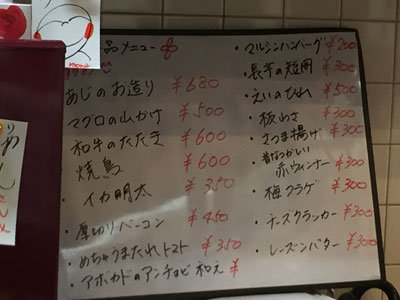 品メニュー
あじのお造り ¥680
マグロの山かけ ¥500
和牛のたたき ¥600
焼鳥 ¥600
・イカ明太 ¥350
・厚切りベーコン ¥450
・めちゃうまたれトマト ¥350
・アボカドのアンチョビ和え ¥
・マルシンハンバーグ ¥200
・長芋の短冊 ¥300
・えいのひれ ¥500
・板わさ ¥300
・さつま揚げ ¥300
・昔なつかしい
赤ウィンナー ¥300
・梅クラゲ ¥300
・チーズクラッカー ¥300
・レーズンバター ¥300